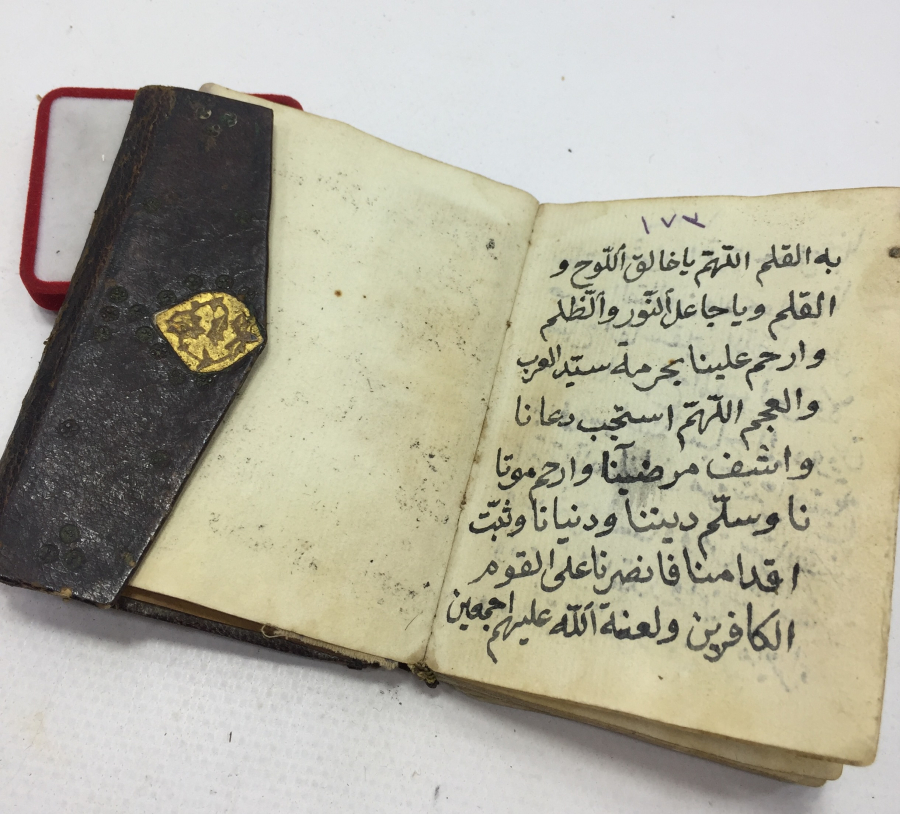 ١٧٣
به القلم اللهمّ ياخالق اللّوح و
القلم وياجاعل النّور والظّلم
وارحم علينا بحرمة سيّد العرب
والعجم اللّهمّ استجب دعانا
واشف مرضىنا وارحم موتا
نا وسلّم ديننا ودنيانا وثبّت
اقدامنا فانصرنا على القوم
الكافرين ولعنة الله عليهم اجمعين